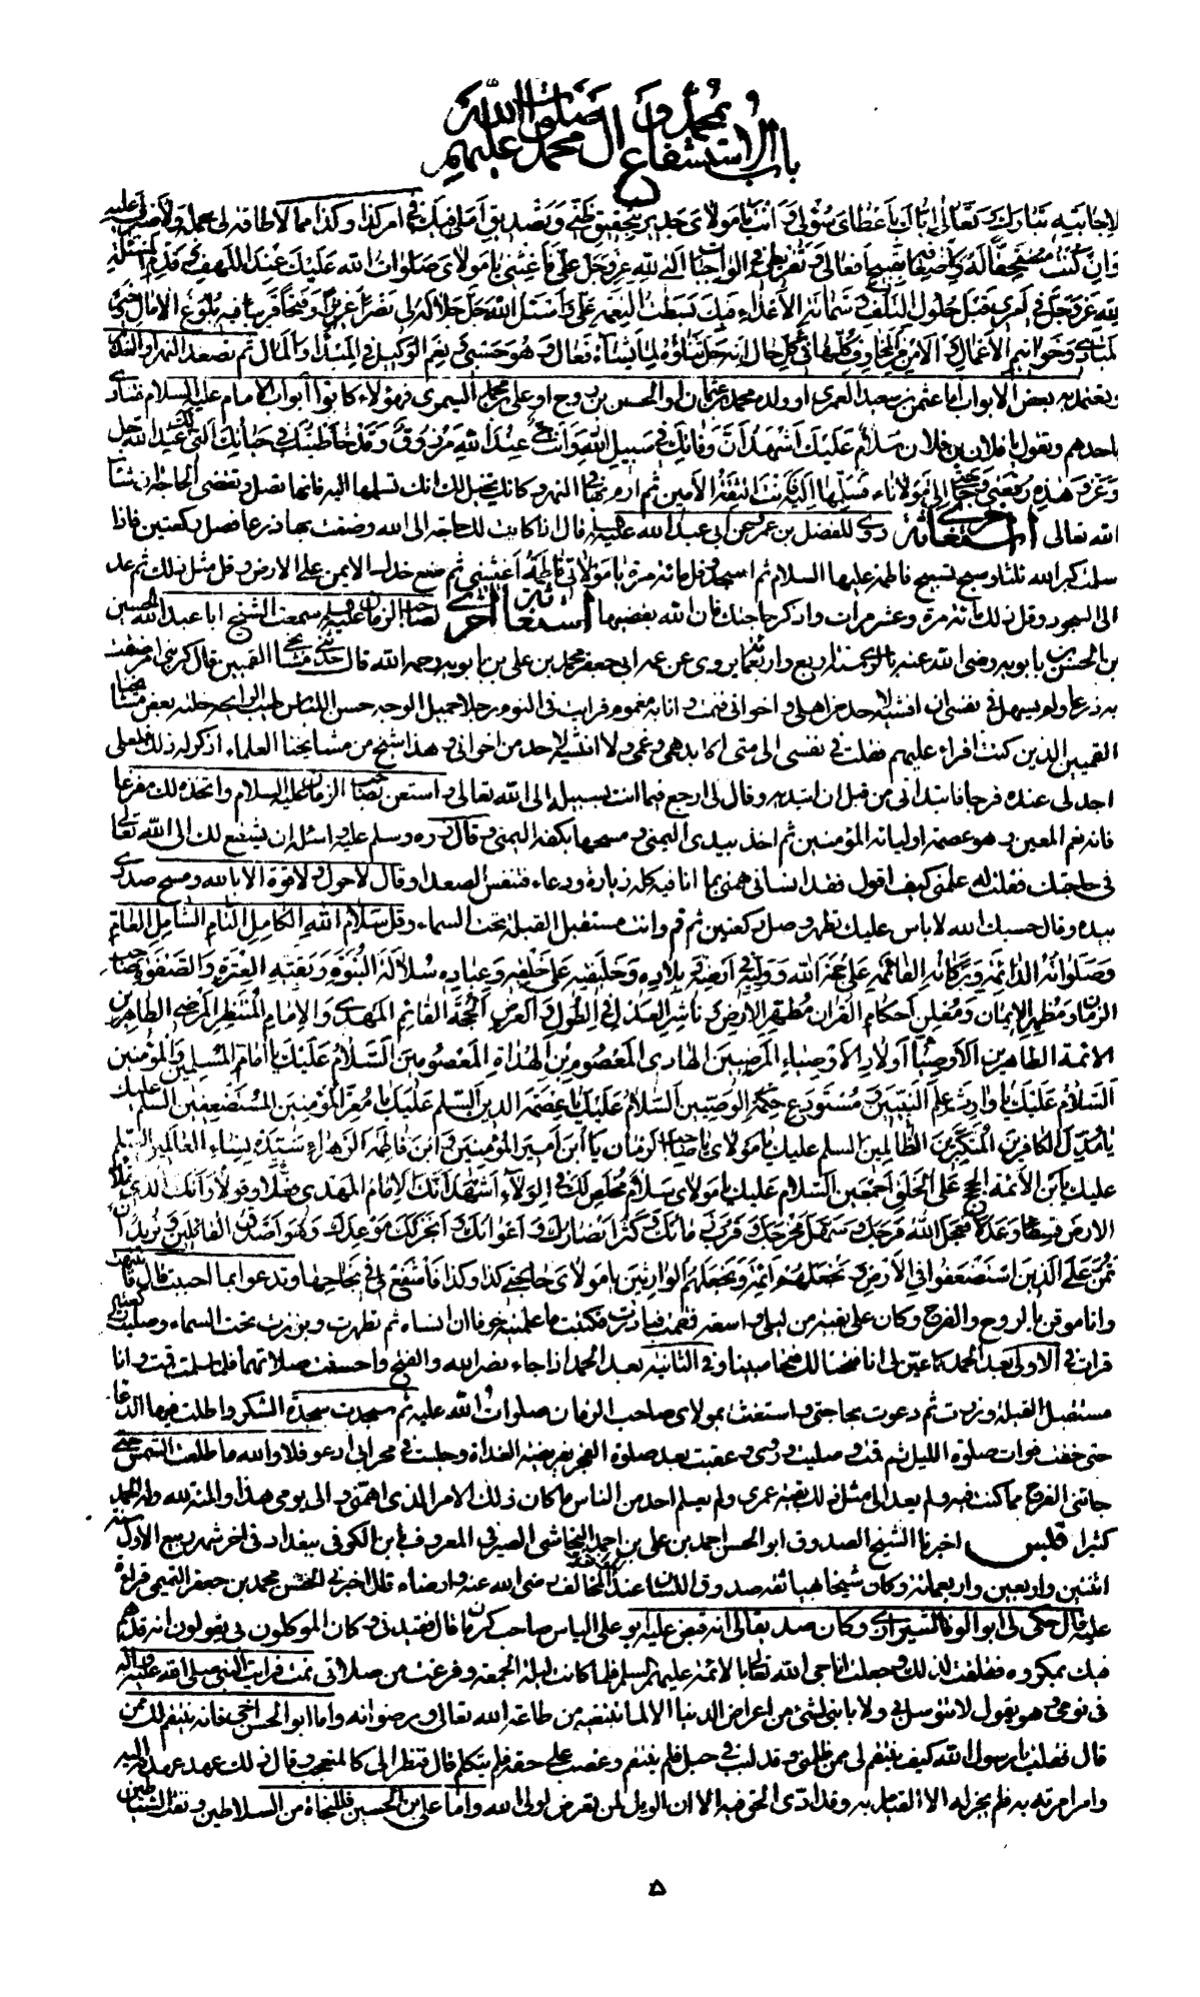 باب الاستشفاع بمحمد وآل محمد صلوات الله عليهم
لاجابته تبارك وتعالى اياك باعطائي سؤلي وانت يا مولاي جدير بتحقيق ظني وتصديق املي فيك في امر كذا وكذا مما لا طاقة لي بحمله ولا صبر لي عليه
وان كنت مستحقا له ولاضعافه بقبيح افعالي وتفريطي في الواجبات التي لله عز وجل علي فاغثني يا مولاي صلوات الله عليك عند اللهف وقدم المسئلة
لله عز وجل في امري قبل حلول التلف وشماتة الاعداء فبك بسطت النعمة علي واسئل الله جل جلاله لي نصرا عزيزا وفتحا قريبا فيه بلوغ الامال وخير
المبادي وخواتيم الاعمال والامن من المخاوف كلها في كل حال انه جل ثناؤه لما يشاء فعال وهو حسبي ونعم الوكيل في المبدأ والمال ثم تصعد النهر او الغدير
وتعتمد به بعض الابواب اما عثمن بن سعيد العمري او ولده محمد بن عثمان او الحسين بن روح او علي بن محمد السمري فهؤلاء كانوا ابواب الامام عليه السلام فتنادي
باحدهم وتقول يا فلان بن فلان سلام عليك اشهد ان وفاتك في سبيل الله وانت حي عند الله مرزوق وقد خاطبتك في حياتك التي لك عند الله جل
وعز وهذه رقعتي وحاجتي الى مولانا ء فسلمها اليه فانت الثقة الامين ثم ارم بها في النهر وكانك تخيل لك انك تسلمها اليه فانها تصل وتقضى الحاجة ان شاء
الله تعالى استغاثة اخرى روى المفضل بن عمر عن ابي عبد الله عليه قال اذا كانت لك حاجة الى الله وضقت بها ذرعا فصل ركعتين فاذا
سلمت كبر الله ثلثا وسبح تسبيح فاطمة عليها السلام ثم اسجد وقل مائة مرة يا مولاتي فاطمة اغيثيني ثم ضع خدك الايمن على الارض وقل مثل ذلك ثم عد
الى السجود وقل ذلك مائة مرة وعشر مرات واذكر حاجتك فان الله يقضيها استغاثة اخرى لصاحب الزمان عليه سمعت الشيخ ابا عبد الله الحسين
بن الحسن بن بابويه رضي الله عنه بالري سنة اربع واربعمائة يروي عن عمه ابي جعفر محمد بن علي بن بابويه رحمه الله قال حدثني مشايخي القميين قال كربني امر ضقت
به ذرعا ولم يسهل في نفسي ان افشيه لاحد من اهلي واخواني فنمت وانا به مغموم فرايت في النوم رجلا جميل الوجه حسن اللباس طيب الرايحة خلته بعض مشايخنا
القميين الذين كنت اقراء عليهم فقلت في نفسي الى متى اكابد همي وغمي ولا افشيه لاحد من اخواني وهذا شيخ من مشايخنا العلماء اذكر له ذلك فلعلي
اجد لي عنده فرجا فابتدأني من قبل ان ابتديه وقال لي ارجع فيما انت بسبيله الى الله تعالى واستعن بصاحب الزمان عليه السلام واتخذه لك مفزعا
فانه نعم المعين وهو عصمة اوليائه المؤمنين ثم اخذ بيدي اليمنى ومسحها بكفه اليمنى وقال زره وسلم عليه واسئله ان يشفع لك الى الله تعالى
في حاجتك فقلت له علمني كيف اقول فقد انساني همي بما انا فيه كل زيارة ودعاء فتنفس الصعداء وقال لا حول ولا قوة الا بالله ومسح صدري
بيده وقال حسبك الله لا باس عليك تطهر وصل ركعتين ثم قم وانت مستقبل القبلة تحت السماء وقل سلام الله الكامل التام الشامل العام
وصلواته الدائمة وبركاته القائمة على حجة الله ووليه في ارضه وبلاده وخليفته على خلقه وعباده سلالة النبوة وبقية العترة والصفوة صاحب
الزمان ومظهر الايمان ومعلن احكام القران مطهر الارض وناشر العدل في الطول والعرض الحجة القائم المهدي والامام المنتظر المرضي الطاهر بن
الائمة الطاهرين الوصي بن اولاد الاوصياء المرضيين الهادي المعصوم بن الهداة المعصومين السلام عليك يا امام المسلمين والمؤمنين
السلام عليك يا وارث علم النبيين ومستودع حكمة الوصيين السلام عليك يا عصمة الدين السلم عليك يا معز المؤمنين المستضعفين السلم عليك
يا مذل الكافرين المتكبرين الظالمين السلم عليك يا مولاي يا صاحب الزمان يا ابن امير المؤمنين وابن فاطمة الزهراء سيدة نساء العالمين السلم
عليك يا بن الائمة الحجج على الخلق اجمعين السلام عليك يا مولاي سلام مخلص لك في الولاء اشهد انك الامام المهدي فعلا وقولا وانك الذي تملأ
الارض قسطا وعدلا فعجل الله فرجك وسهل مخرجك وقرب زمانك وكثر انصارك واعوانك وانجز لك موعدك وهو اصدق القائلين ونريد ان
نمن على الذين استضعفوا في الارض ونجعلهم ائمة ونجعلهم الوارثين يا مولاي حاجتي كذا وكذا فاشفع لي في نجاحها وتدعوا بما احببت قال فانتبهت
وانا موقن بالروح والفرج وكان علي بقية من ليلي واسعة فقمت فبادرت فكتبت ما علمنيه خوفا ان انساه ثم تطهرت وبرزت تحت السماء وصليت ركعتين
قرات في الاولى بعد الحمد كما عين لي انا فتحنا لك فتحا مبينا وفي الثانية بعد الحمد اذا جاء نصر الله والفتح واحسنت صلاتهما فلما سلمت قمت وانا
مستقبل القبلة وزرت ثم دعوت بحاجتي واستغثت بمولاي صاحب الزمان صلوات الله عليه ثم سجدت سجدة الشكر واطلت فيها الدعاء
حتى خفت فوات صلوة الليل ثم قمت وصليت وردي وعقبت بعد صلوة الفجر بفريضة الغداة وجلست في محرابي ادعو فلا والله ما طلعت الشمس حتى
جاءتني الفرج مما كنت فيه ولم يعد الي مثل ذلك بقية عمري ولم يعلم احد من الناس ما كان ذلك الامر الذي اهمني الى يومي هذا والمنة لله وله الحمد
كثيرا قبس اخبرنا الشيخ الصدوق ابو الحسن احمد بن علي بن احمد النجاشي الصيرفي المعروف بابن الكوفي ببغداد في اخر شهر ربيع الاول سنة
اثنتين واربعين واربعمائة وكان شيخا بهيا ثقة صدوق اللسان عند المخالف رضي الله عنه وارضاه قال اخبرني الحسن محمد بن جعفر التميمي قراءة
عليه قال حكى لي ابو الوفا الشيرازي وكان صديقا لي انه قبض عليه ابو علي الياس صاحب كرمان قال فقيدني وكان الموكلون بي يقولون انه قد هم
فيك بمكروه فقلقت لذلك وجعلت اناجي الله تعالى بالائمة عليهم السلم فلما كانت ليلة الجمعة وفرغت من صلاتي نمت فرايت النبي صلى الله عليه واله
في نومي وهو يقول لا تتوسل بي ولا بابنتي لشئ من اعراض الدنيا الا لما تبتغيه من طاعة الله تعالى ورضوانه واما ابو الحسن اخي فانه ينتقم لك ممن
قال فقلت يا رسول الله كيف ينتقم لي ممن ظلمني وقد لبب في حبل فلم ينتقم وغصب على حقه فلم يتكلم قال فنظر الي كالمتعجب وقال ذلك عهد عهدته اليه
وامر امرته به فلم يجز له الا القيام به وقد ادى الحق فيه الا ان الويل لمن تعرض لولي الله واما علي بن الحسين فللنجاة من السلاطين ونفث الشياطين
۵